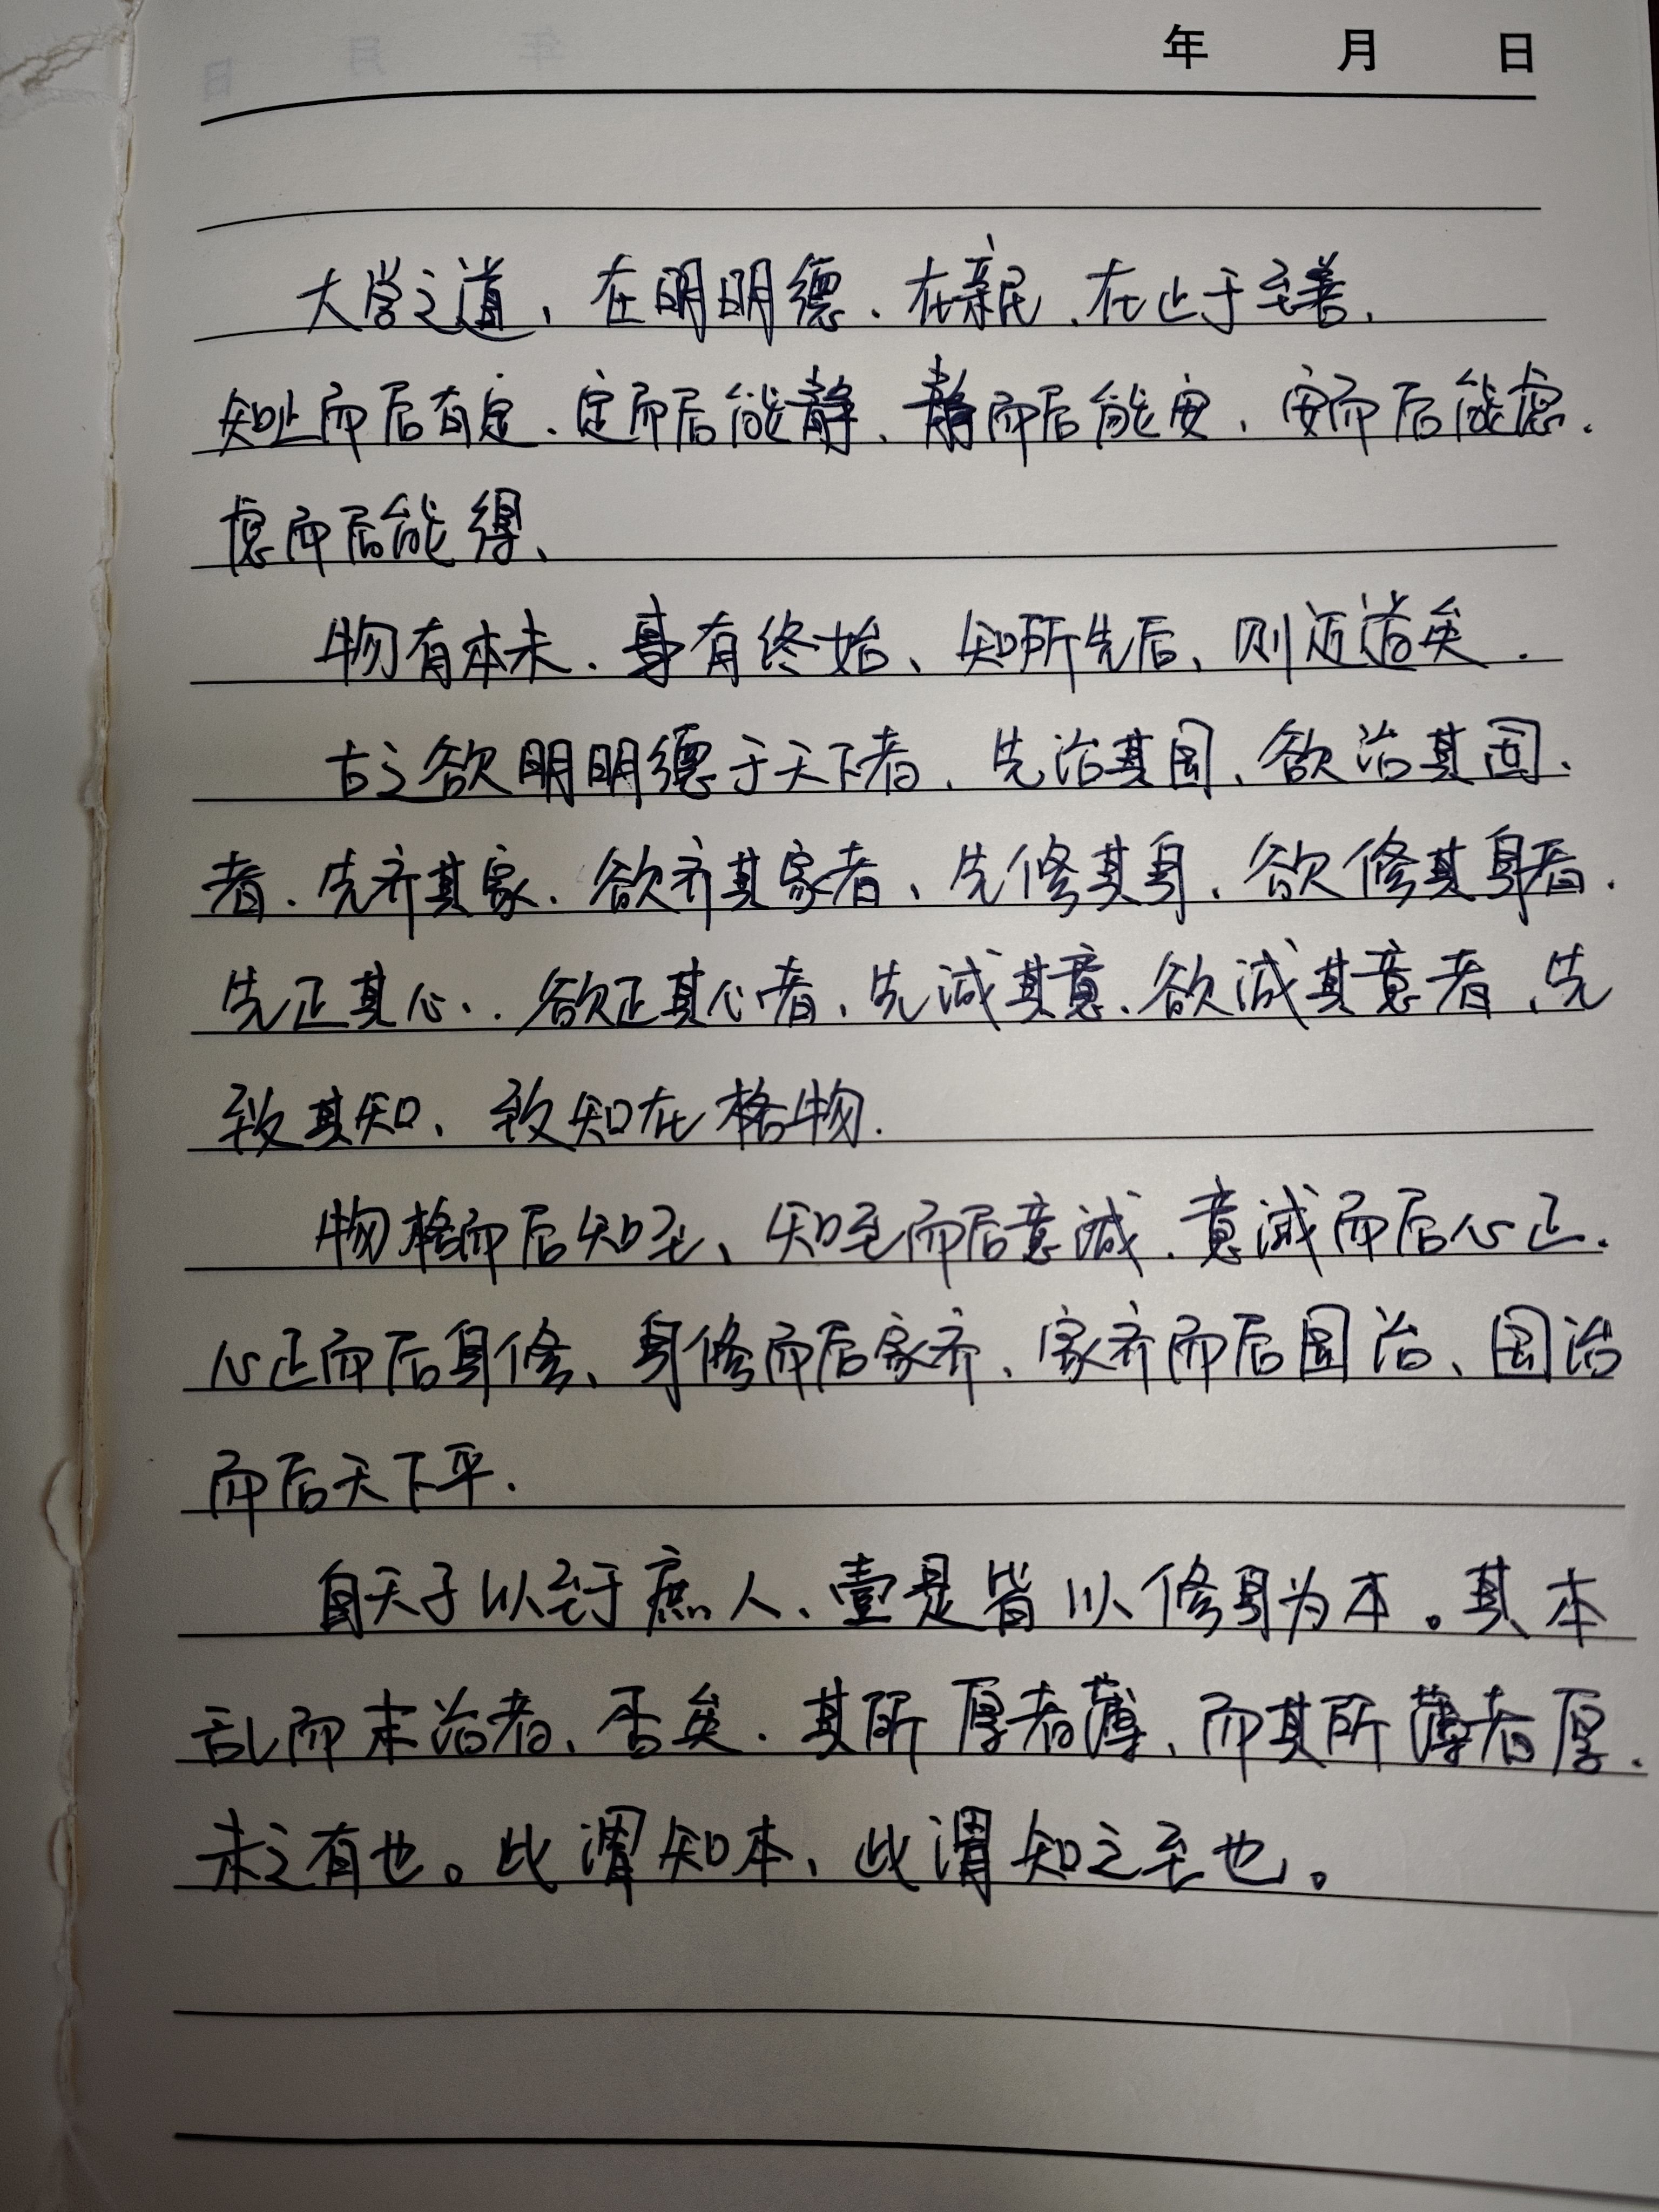 年 月 日
大学之道，在明明德．在亲民．在止于至善．
知止而后有定．定而后能静、静而后能安，安而后能虑．
虑而后能得、
物有本末．事有终始、知所先后、则近道矣．
古之欲明明德于天下者．先治其国、欲治其国．
者．先齐其家．欲齐其家者、先修其身．欲修其身者．
先正其心．．欲正其心者．先诚其意．欲诚其意者，先
致其知、致知在格物．
物格而后知至、知至而后意诚．意诚而后心正．
心正而后身修、身修而后家齐．家齐而后国治、国治
而后天下平．
自天子以至于庶人、壹是皆以修身为本。其本
乱而末治者、否矣．其所厚者薄、而其所薄者厚．
未之有也。此谓知本、此谓知之至也。